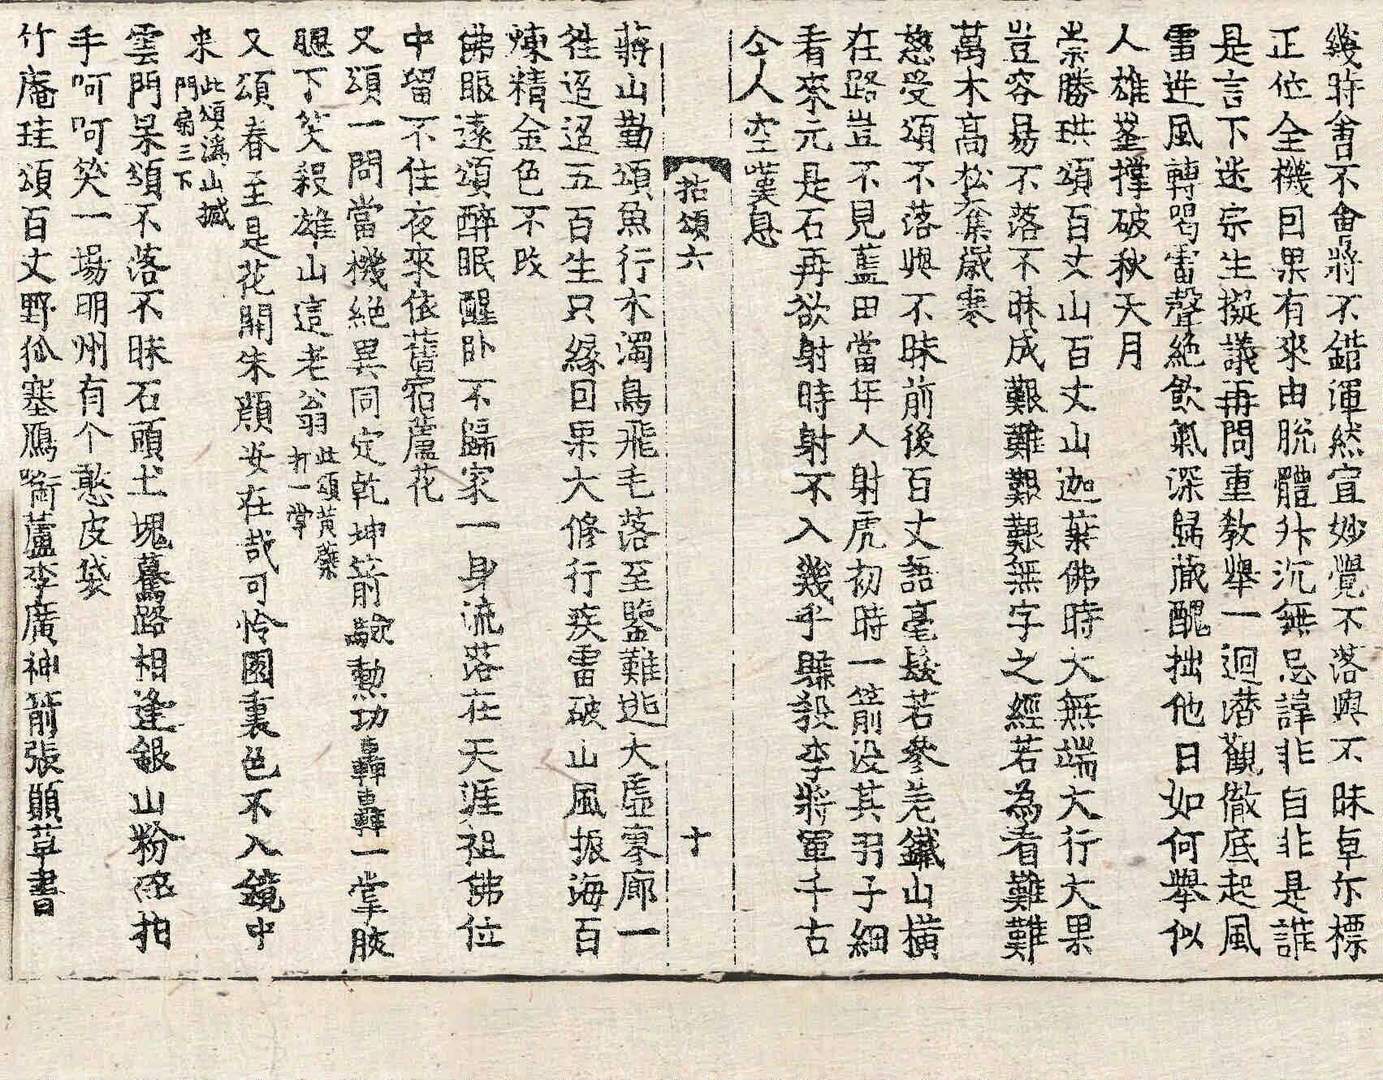 幾時會不會將不錯渾然宜妙覺不落與不昧卓尒標
正他全機因果有來由脫體升沉無忌諱非自非是誰
是言下迷宗生擬議再問重教舉一迴潛觀徹底起風
雷逆風轉喝雷聲絕飲氣深歸藏醜拙他日如何舉似
人雄峯撑破秋天月
崇勝珙頌百丈山百丈山迦葉佛時大無端大行大果
豈容易不落不昧成艱難艱艱無字之經若為看難難
萬木高松奪歲寒
慈受頌不落與不昧前後百丈語毫髮若參差鐵山橫
在路豈不見藍田當年人射虎初時一箭没其羽子細
看來元是石再欲射時射不入幾乎賺殺李將軍千古
令人空嘆息
拈頌六 十
蔣山勤頌魚行水濁鳥飛毛落至鑒難逃大虛寥廓一
徃迢迢五百生只緣因果大修行疾雷破山風振海百
煉精金色不改
佛眼遠頌醉眠醒卧不歸家一身流落在天涯祖佛位
中留不住夜來依舊宿蘆花
又頌一問當機絕異同定乾坤箭驗勳功轟轟一掌腋
腮下笑殺雄山這老翁 此頌黃蘗打一掌
又頌春至是花開朱顔安在哉可怜園裏色不入鏡中
來 此頌溈山撼門扇三下
雲門杲頌不落不昧石頭土塊驀路相逢銀山粉碎拍
手呵呵笑一場明州有个憨皮袋
竹庵珪頌百丈野狐塞鴈㘅蘆李廣神箭張顛草書